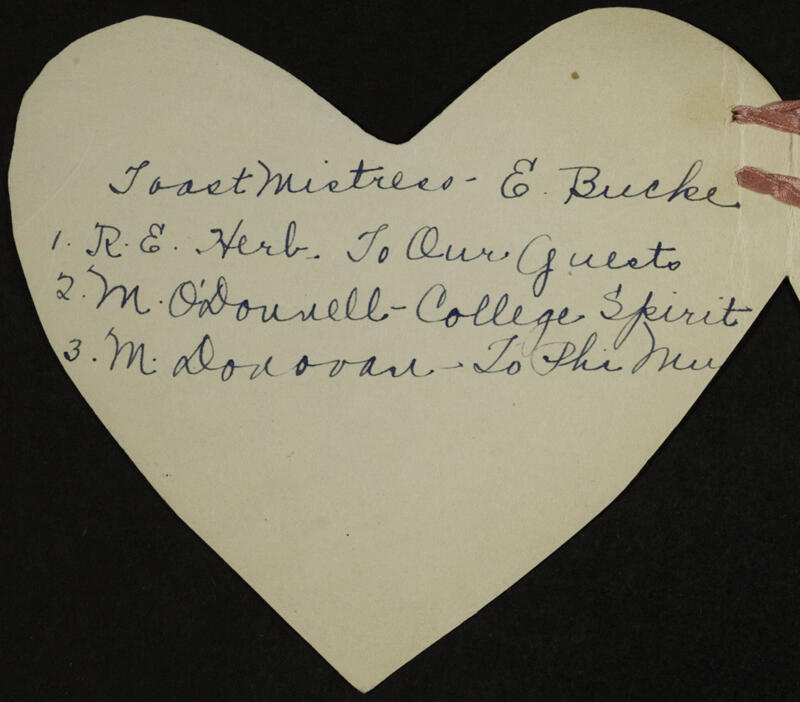 Toast Mistress - E. Bucke
1. R. E. Herb. To Our Guests
2. M. O'Donnell - College Spirit
3. M. Donovan - To Phi Mu